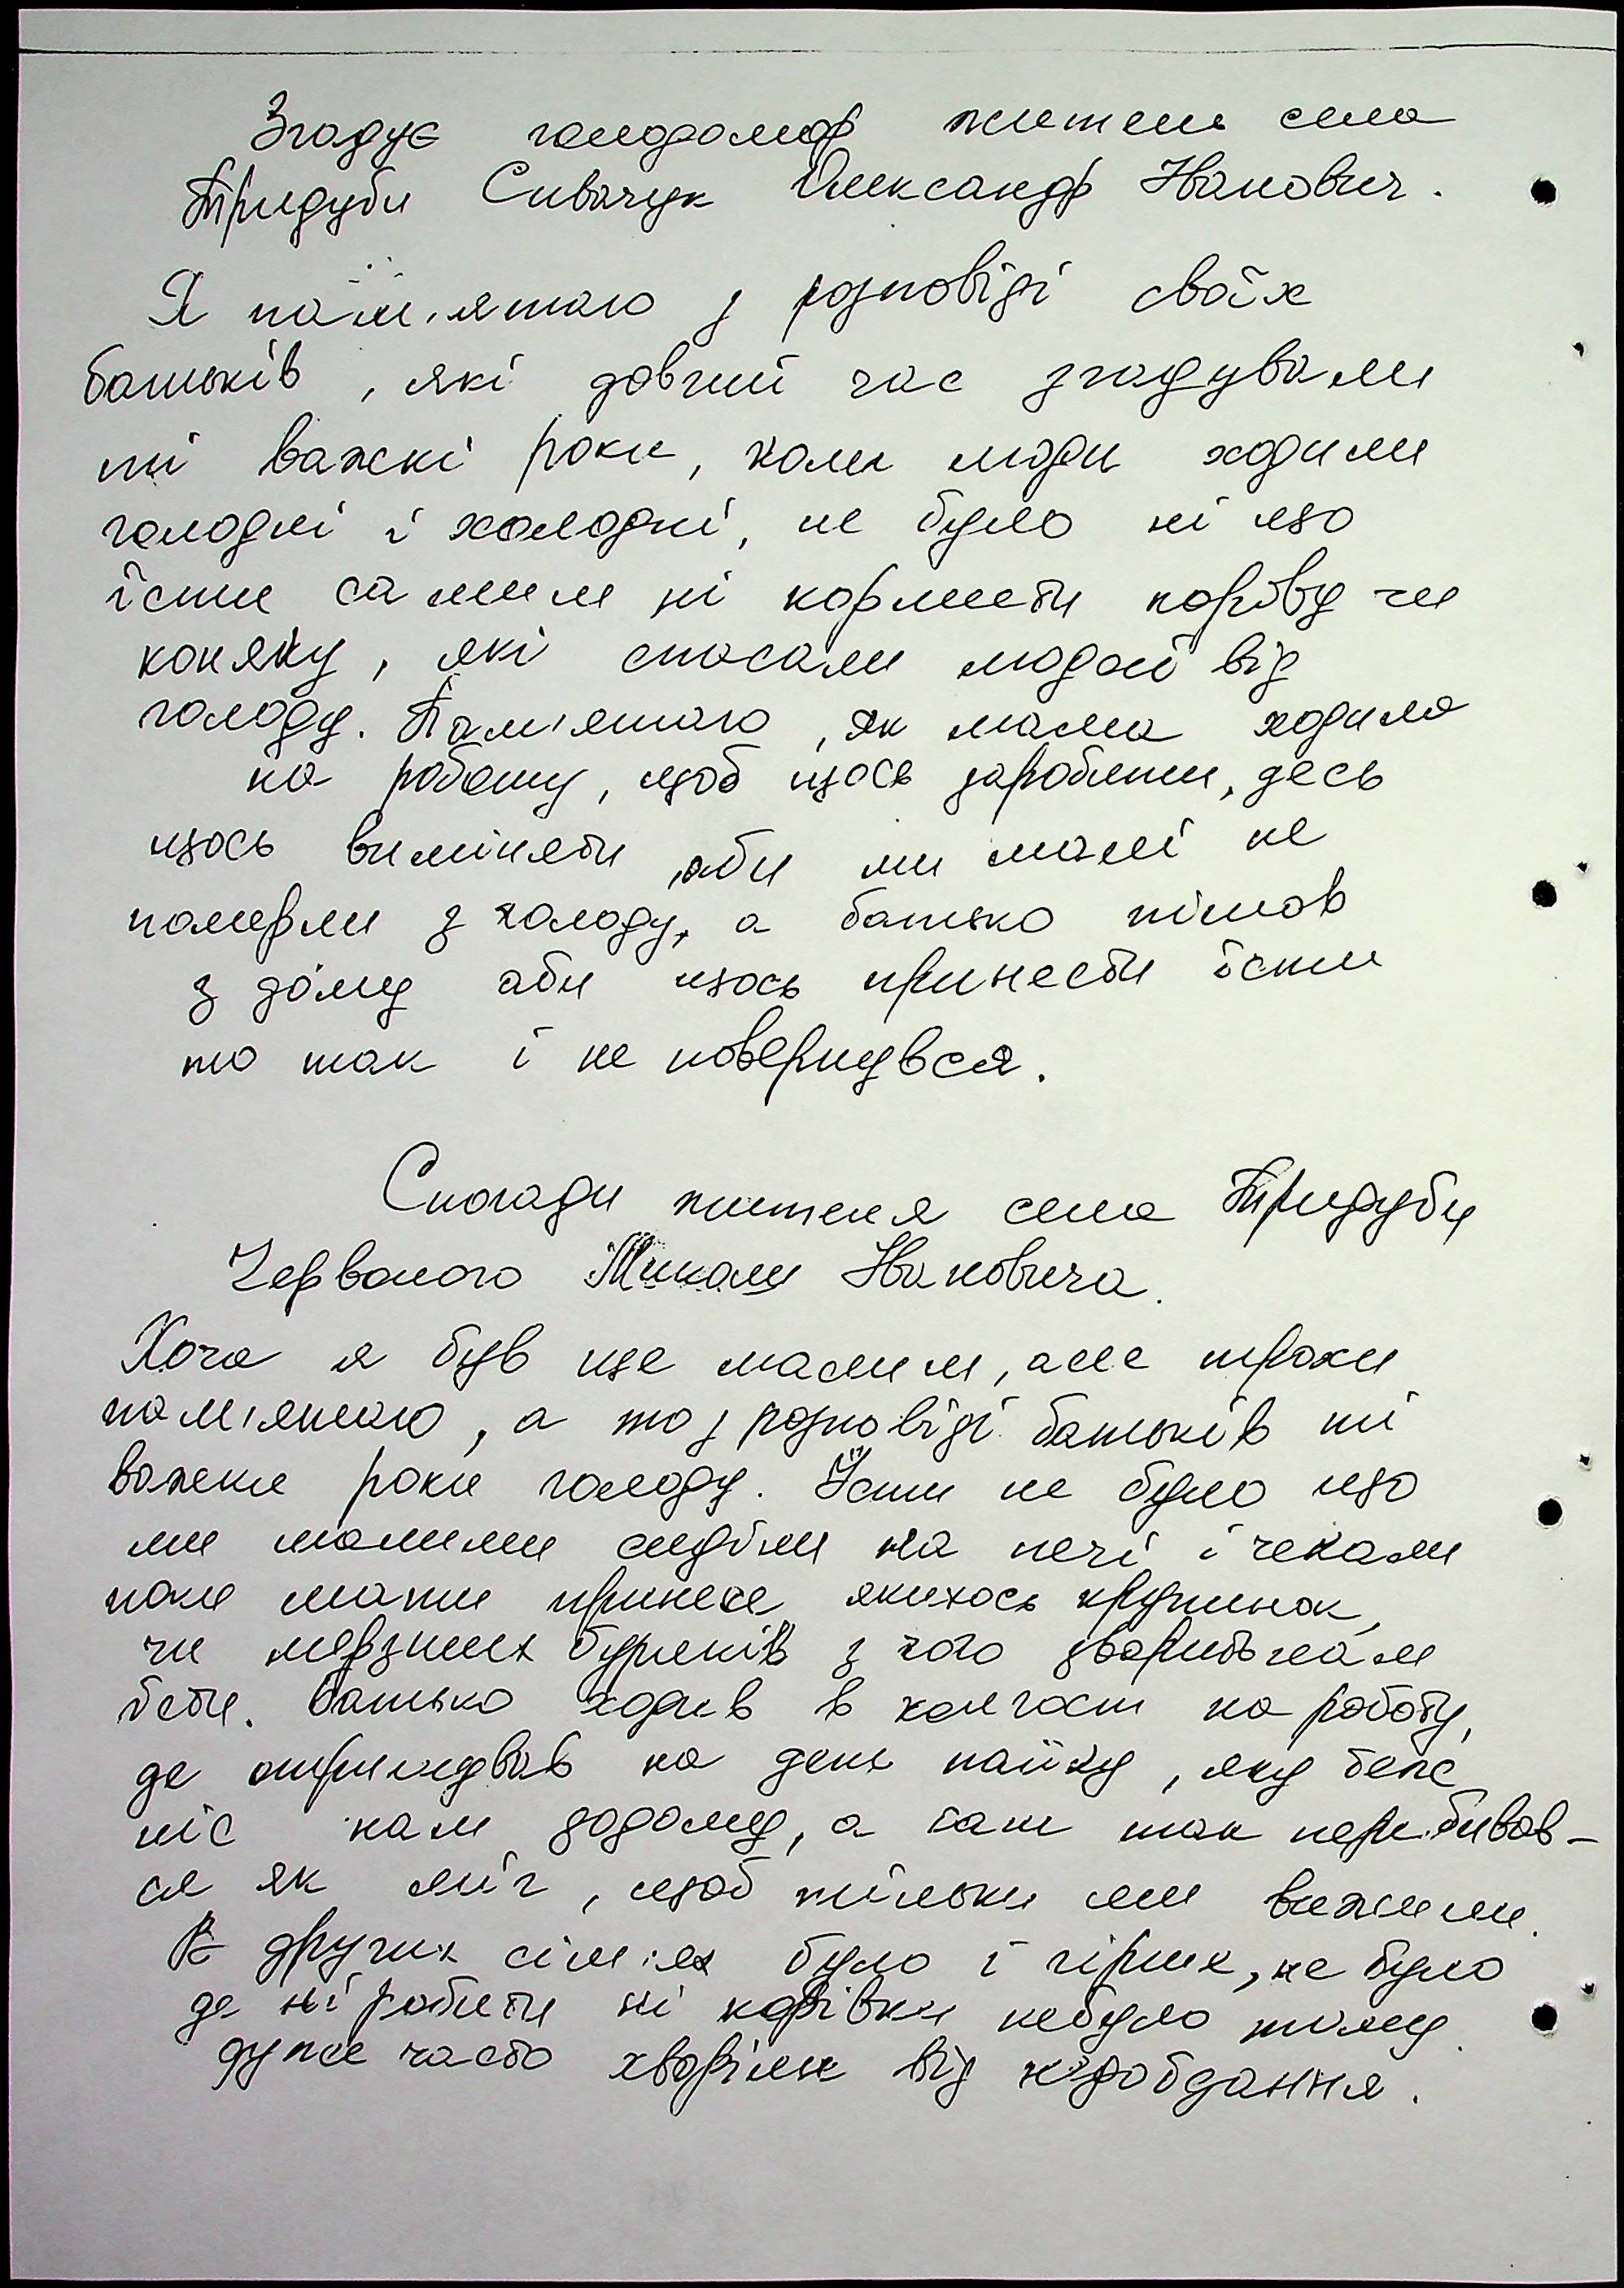 Згадує голодомор житель села
Тридуби Сивачук Олександр Іванович.
Я пам'ятаю з розповіді своїх
батьків, які довгий час згадували
ті важкі роки, коли люди ходили
голодні і холодні, не було ні що
їсти самим ні кормити корову чи
коняку, які спасали людей від
голоду. Пам'ятаю, як мама ходила
на роботу, щоб щось заробити, десь
щось виміняти, аби ми малі не
померли з голоду, а батько пішов
з дому аби щось принести їсти
то так і не повернувся.
Спогади жителя села Тридуби
Червоного Миколи Івановича.
Хоча я був ще малим, але трохи
пам'ятаю, а то з розповіді батьків ті
важкі роки голоду. Їсти не було що
ми малими сиділи на печі і чекали
поки мати принесе якихось крупинок,
чи мерзлих буряків з чого зварить нам
їсти. Батько ходив в колгосп на роботу,
де отримував на день пайку, яку
ніс нам додому, а сам так перебивав-
ся як міг, щоб тільки ми вижили.
В других сім'ях було і гірше, не було
де ні робити ні корівки небуло тому
дуже часто хворіли від